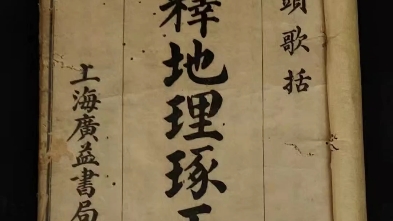 頭歌括
釋地理琢玉
上海廣益書局